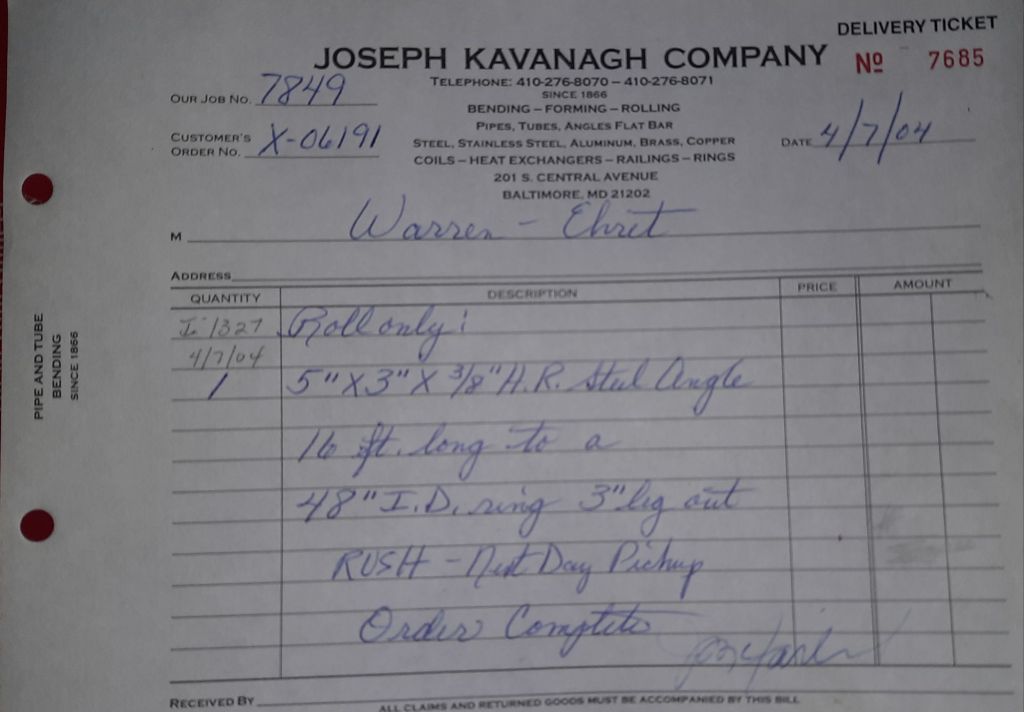 DELIVERY TICKET
JOSEPH KAVANAGH COMPANY
Nº 7685
TELEPHONE: 410-276-8070 – 410-276-8071
SINCE 1866
OUR JOB NO. 7849
BENDING – FORMING – ROLLING
PIPES, TUBES, ANGLES FLAT BAR
CUSTOMER'S ORDER NO. X-06191
STEEL, STAINLESS STEEL, ALUMINUM, BRASS, COPPER
DATE 4/7/04
COILS – HEAT EXCHANGERS – RAILINGS – RINGS
201 S. CENTRAL AVENUE
BALTIMORE, MD 21202
M Warren - Ehret
ADDRESS
QUANTITY DESCRIPTION PRICE AMOUNT
I-1327 Roll only:
4/7/04
1 5" X 3" X 3/8" H.R. Steel Angle
16 ft. long to a
48" I.D. ring 3" leg out
RUSH - Next Day Pickup
Order Complete
RECEIVED BY
ALL CLAIMS AND RETURNED GOODS MUST BE ACCOMPANIED BY THIS BILL
PIPE AND TUBE
BENDING
SINCE 1866